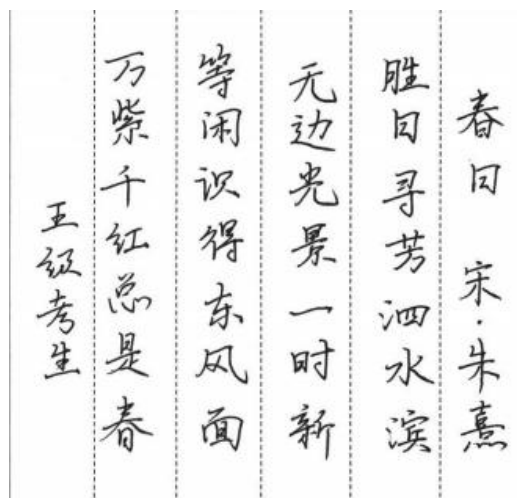 春日 宋·朱熹
胜日寻芳泗水滨
无边光景一时新
等闲识得东风面
万紫千红总是春
五级考生